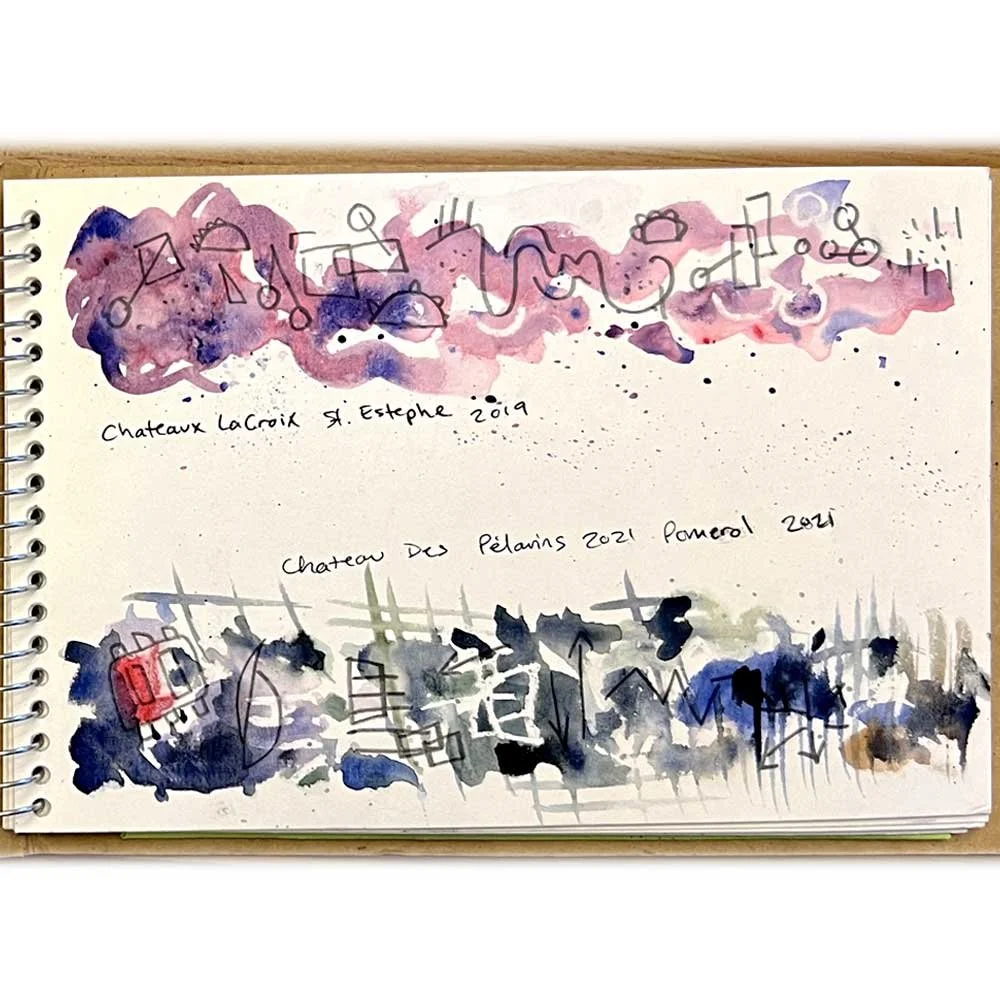 Chateaux LaCroix St. Estephe 2019
Chateau Des Pélavins 2021 Pomerol 2021